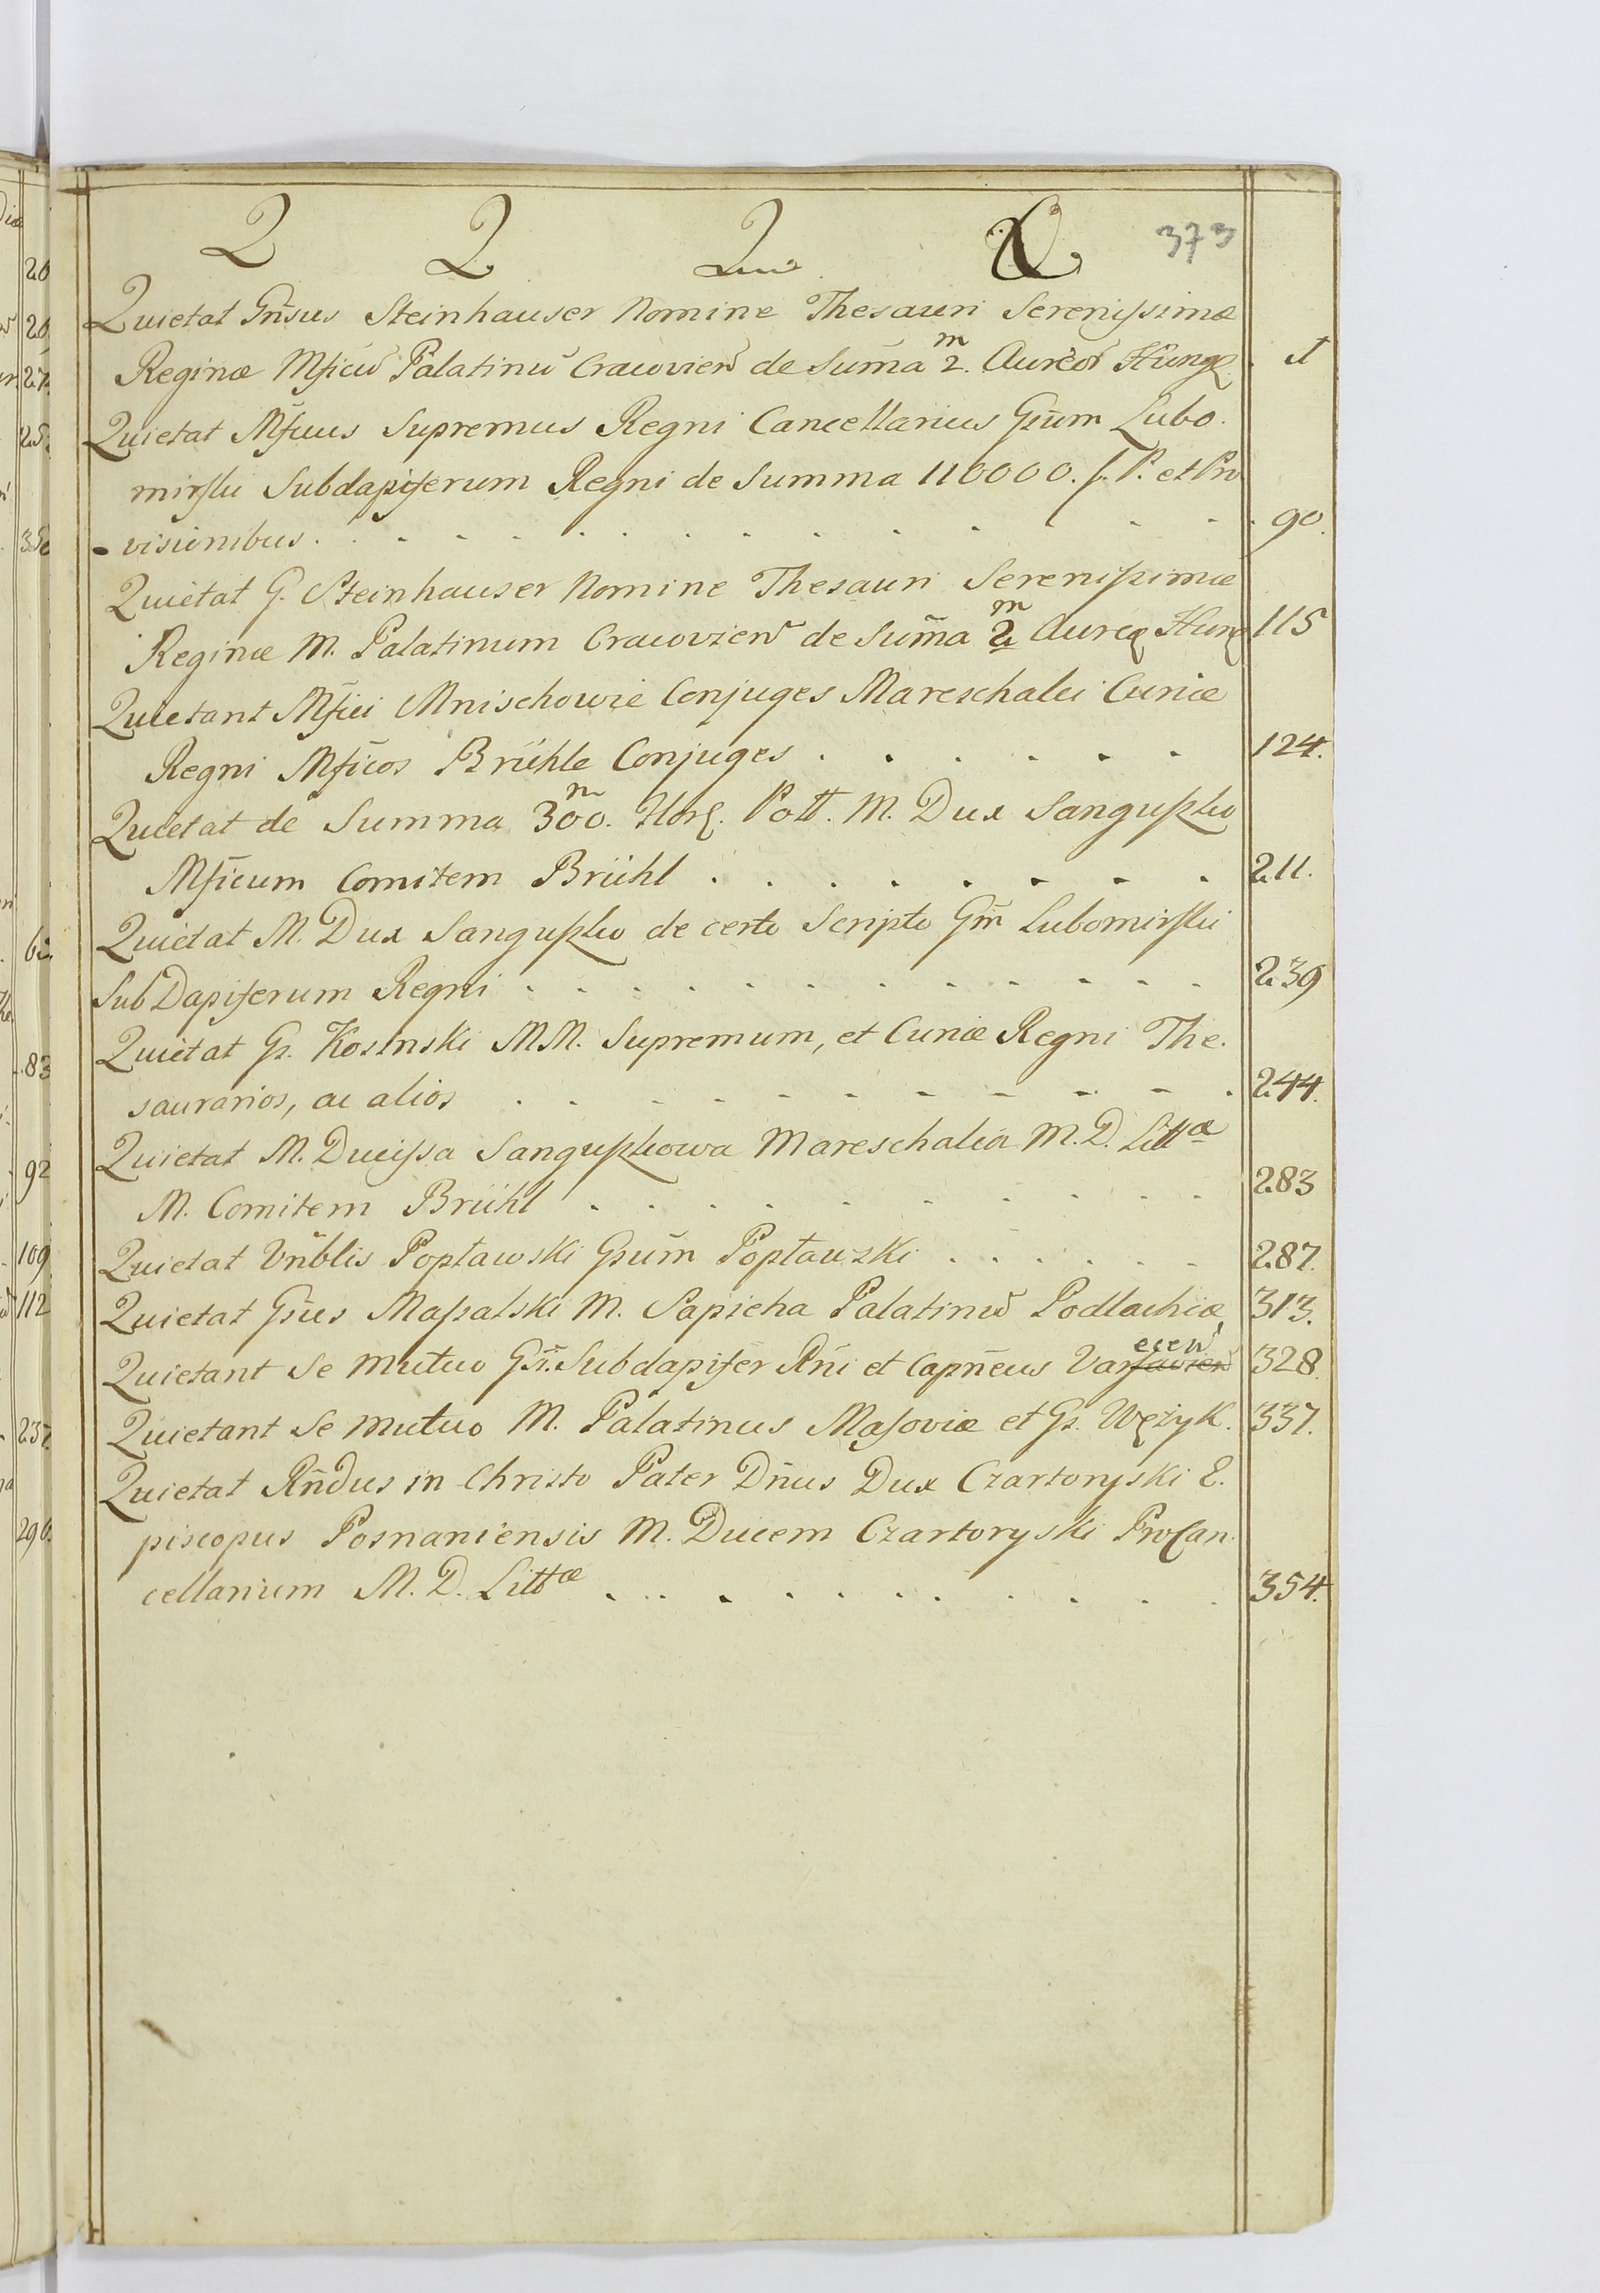 Q Q Q Q 373
Quietat Gñsus Steinhauser Nomine Thesauri Serenissimæ
Reginæ Mficũ Palatinũ Cracovien de Sum̃a 2.m Aureor Hung. 1
Quietat Mficus Supremus Regni Cancellarius Gsum Lubo.
mirski Subdapiferum Regni de Summa 110000. f. P. et Pro
visionibus. 90.
Quietat G. Steinhauser Nomine Thesauri Serenissimæ
Reginæ M. Palatinum Cracovien de Sum̃a 2m Aureor Hung 115
Quietant Mfici Mnischowie Conjuges Mareschalci Curiæ
Regni Mficos Brühle Conjuges 124.
Quietat de Summa 300.m Flor. Poll. M. Dux Sanguszko
Mficum Comitem Brühl 211.
Quietat M. Dux Sanguszko de certo Scripto Gm̃ Lubomirski
SubDapiferum Regni 239
Quietat Gs. Kosinski MM. Supremum, et Curiæ Regni The.
saurarios, ac alios 244.
Quietat M. Ducissa Sanguszkowa Mareschalca M. D. Littæ
M. Comitem Brühl 283
Quietat Vñblis Popławski Gsum̃ Popławski 287.
Quietat Gsus Massalski M. Sapieha Palatinũ Podlachiæ 313.
Quietant Se mutuo Gsi. Subdapifer Rñi et Capñeus Varsavien ecen 328.
Quietant Se mutuo M. Palatinus Masoviæ et Gs. Wężyk. 337.
Quietat Rñdus in Christo Pater Dñus Dux Czartoryski E.
piscopus Posnaniensis M. Ducem Czartoryski ProCan
cellarium M. D. Littæ 354.
20
20
27.
25.
35
62.
83
92
109
112
237
296.